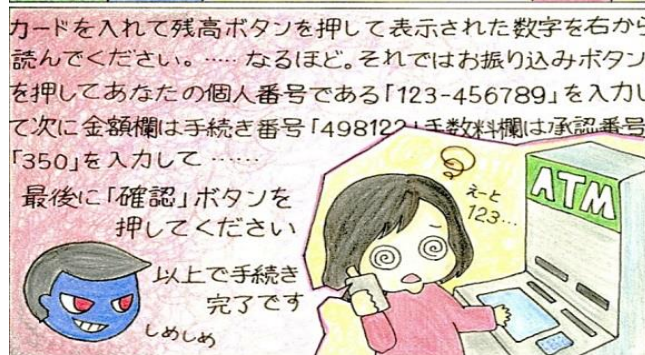 カードを入れて残高ボタンを押して表示された数字を右から
読んでください。……なるほど。それではお振り込みボタン
を押してあなたの個人番号である「123-456789」を入力し
て次に金額欄は手続き番号「498122」手数料欄は承認番号
「350」を入力して……
最後に「確認」ボタンを
押してください
以上で手続き
完了です
しめしめ
えーと
123…
ATM